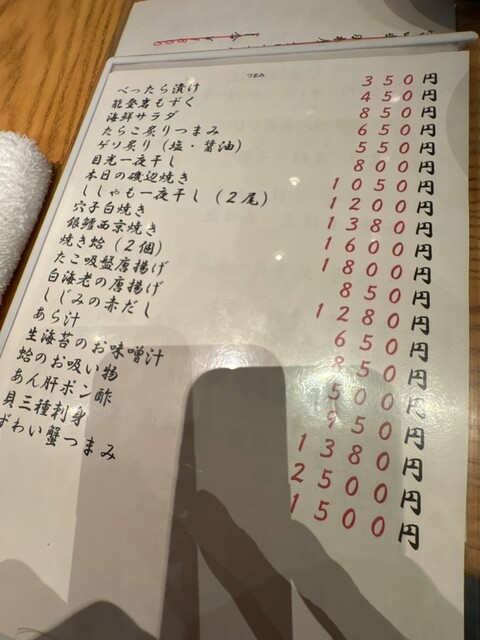 つまみ
べったら漬け 350円
能登岩もずく 450円
海鮮サラダ 850円
たらこ炙りつまみ 650円
ゲソ炙り（塩・醤油） 550円
目光一夜干し 800円
本日の磯辺焼き 1050円
ししゃも一夜干し（2尾） 1200円
穴子白焼き 1380円
銀鱈西京焼き 1600円
焼き蛤（2個） 1800円
たこ吸盤唐揚げ 850円
白海老の唐揚げ 1280円
しじみの赤だし 650円
あら汁 850円
生海苔のお味噌汁 500円
蛤のお吸い物 950円
あん肝ポン酢 1380円
貝三種刺身 2500円
ずわい蟹つまみ 1500円